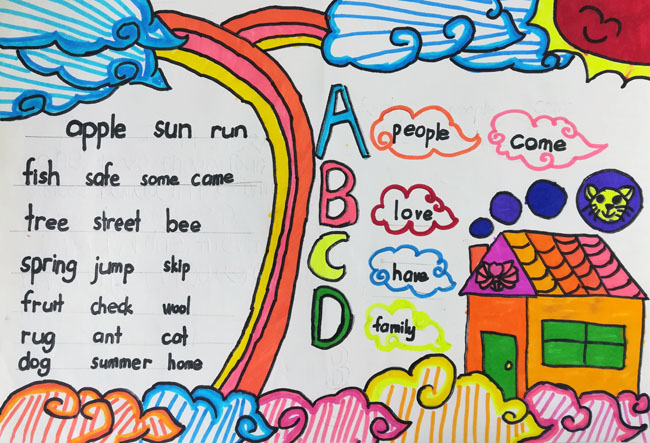 apple sun run
fish safe some came
tree street bee
spring jump skip
fruit check wool
rug ant cat
dog summer home
A
B
C
D
people
come
love
have
family